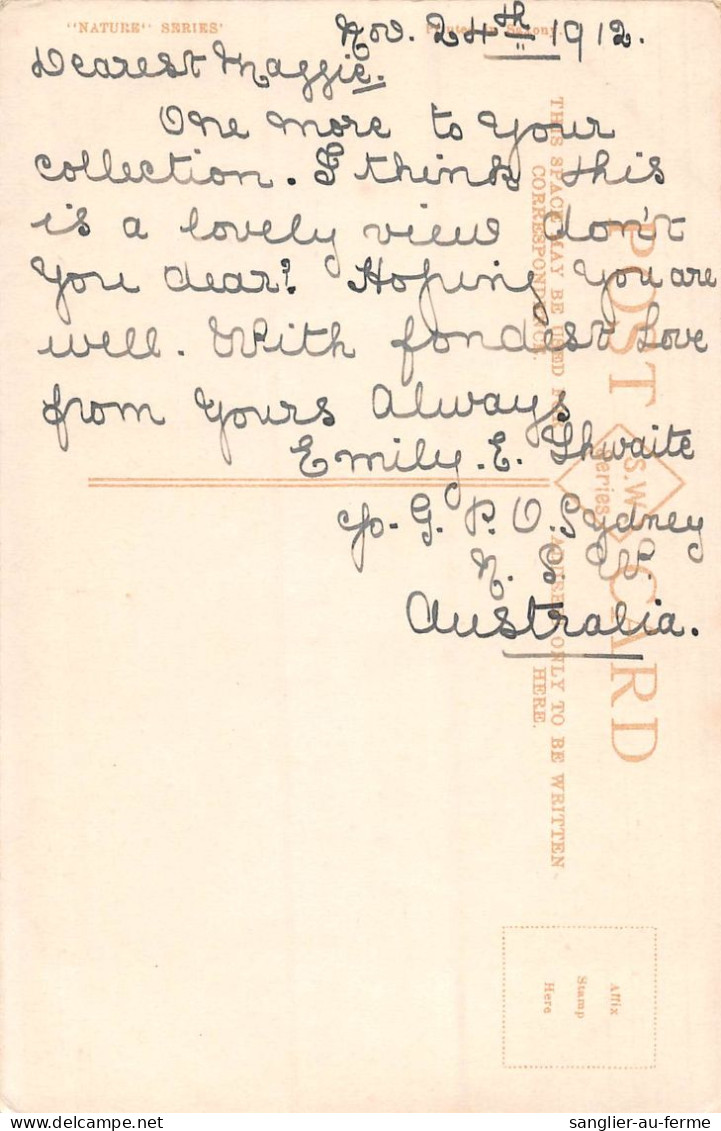 "NATURE" SERIES'
Printed in Saxony.
Nov. 24th 1912.
Dearest Maggie.
One more to your
collection. I think this
is a lovely view don't
you dear? Hoping you are
well. With fondest Love
from yours always
Emily. E. Thwaite
c/o. G. P. O. Sydney
N. S. W.
Australia.
POST CARD
S.W.
Series
THIS SPACE MAY BE USED FOR
CORRESPONDENCE.
ADDRESS ONLY TO BE WRITTEN
HERE.
Affix
Stamp
Here
sanglier-au-ferme